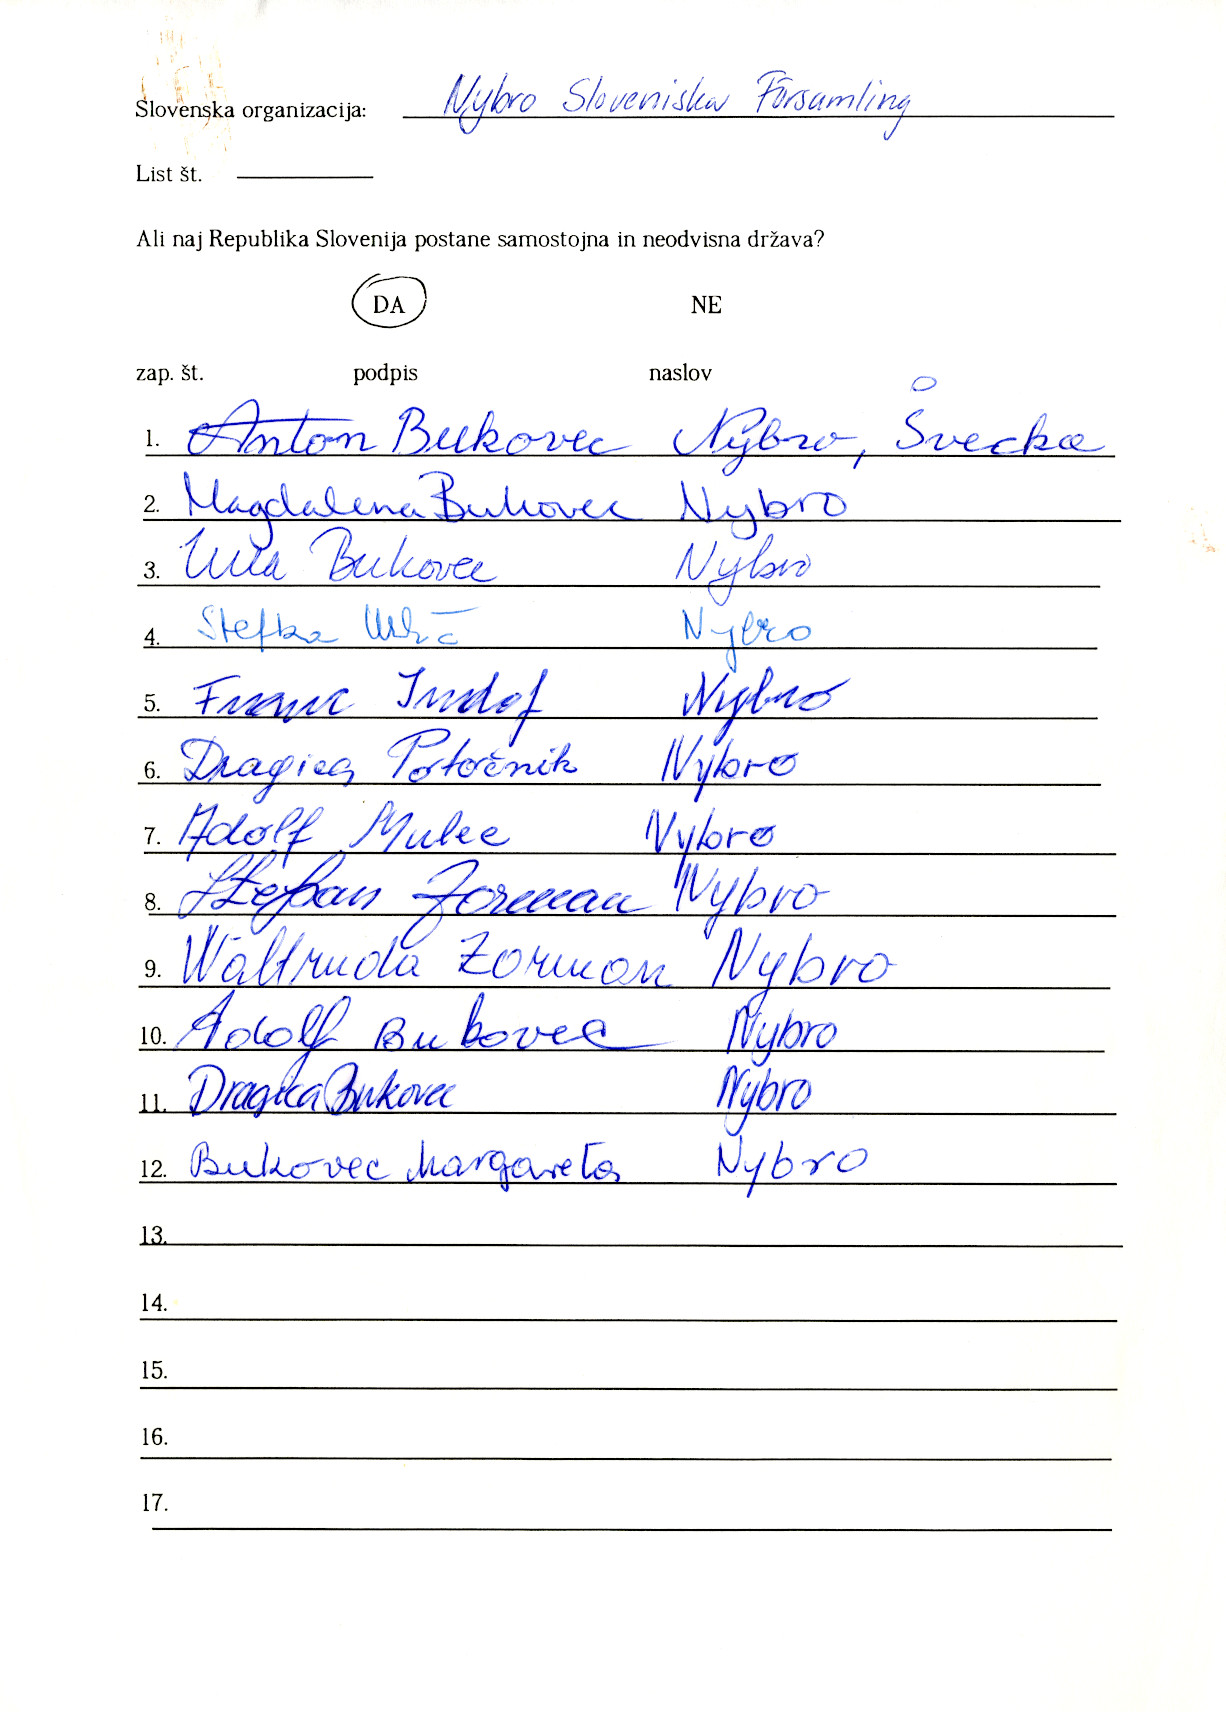 Slovenska organizacija: Nybro Sloveniska Församling
List št.
Ali naj Republika Slovenija postane samostojna in neodvisna država?
DA NE
zap. št. podpis naslov
1. Anton Bukovec Nybro, Švecka
2. Magdalena Bukovec Nybro
3. Bukovec Nybro
4. Stefka Nybro
5. Franc Indof Nybro
6. Dragica Potočnik Nybro
7. Adolf Mulec Nybro
8. Štefan Zorman Nybro
9. Waltruda Zorman Nybro
10. Adolf Bukovec Nybro
11. Dragica Bukovec Nybro
12. Bukovec Margareta Nybro
13.
14.
15.
16.
17.